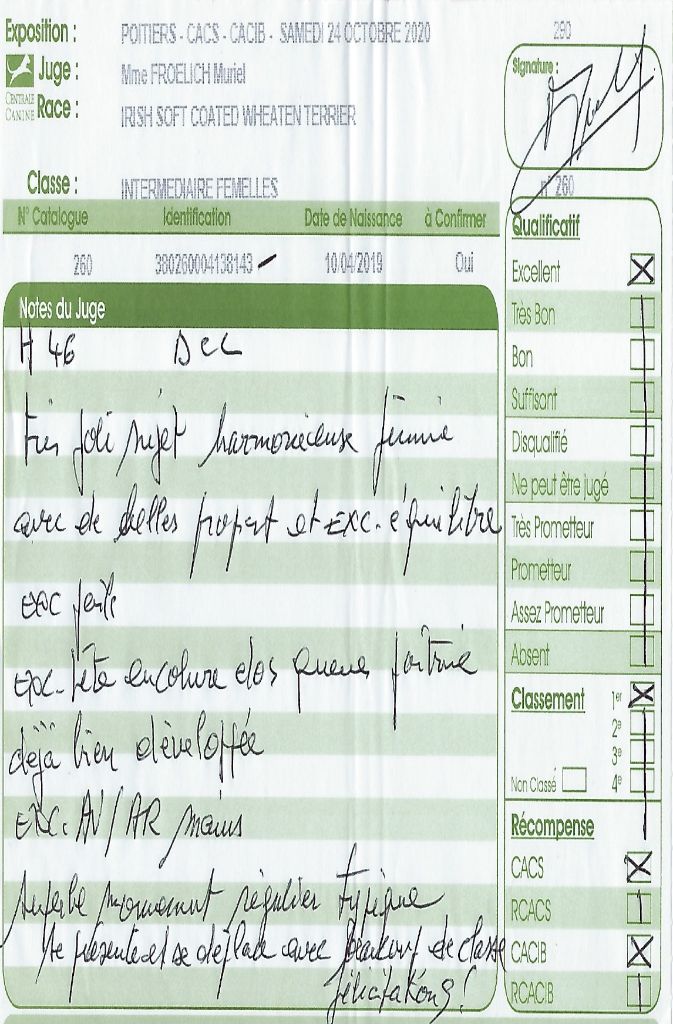 Exposition : POITIERS - CACS - CACIB - SAMEDI 24 OCTOBRE 2020 290
Juge : Mme FROELICH Muriel
CENTRALE CANINE
Race : IRISH SOFT COATED WHEATEN TERRIER
Signature :
Classe : INTERMEDIAIRE FEMELLES
n° 260
N° Catalogue Identification Date de Naissance à Confirmer
260 380260004138143 10/04/2019 Oui
Notes du Juge
H 46 DCC
très joli sujet harmonieuse féminine
avec de belles proport et EXC. équilibre
EXC
EXC. tête encolure dos queue poitrine
déjà bien développée
EXC. AV/AR mains
superbe mouvement régulier typique
se présente et se déplace avec beaucoup de classe
félicitations !
Qualificatif
Excellent
Très Bon
Bon
Suffisant
Disqualifié
Ne peut être jugé
Très Prometteur
Prometteur
Assez Prometteur
Absent
Classement 1er
2e
3e
Non Classé 4e
Récompense
CACS
RCACS
CACIB
RCACIB